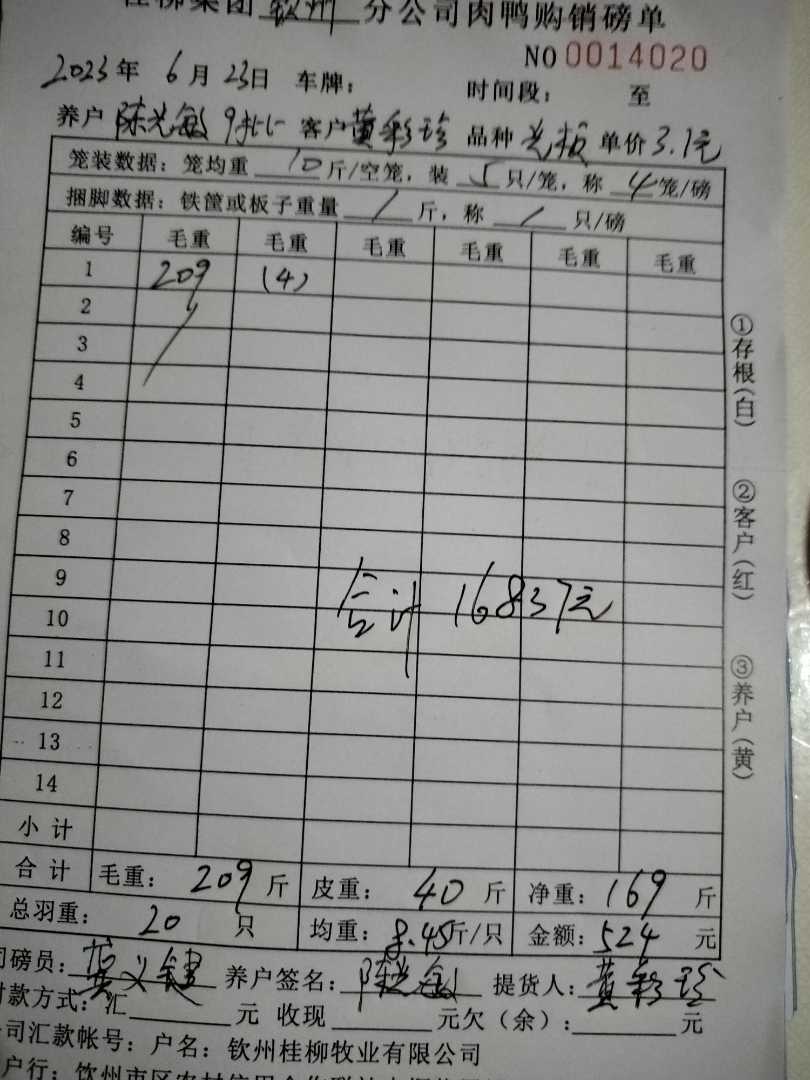 桂柳集团 钦州 分公司肉鸭购销磅单
NO 0014020
2023年 6月 23日 车牌: 时间段: 至
养户 陈光敏 9批 客户 黄彩珍 品种 光板 单价 3.1元
笼装数据: 笼均重 10 斤/空笼, 装 5 只/笼, 称 4 笼/磅
捆脚数据: 铁筐或板子重量 / 斤, 称 / 只/磅
编号 毛重 毛重 毛重 毛重 毛重 毛重
1 209 (4)
2
3
4
5
6
7
8
9
合计 16837元
10
11
12
13
14
小计
合计 毛重: 209 斤 皮重: 40 斤 净重: 169 斤
总羽重: 20 只 均重: 8.45斤/只 金额: 524 元
司磅员: 义键 养户签名: 陈光敏 提货人: 黄彩珍
付款方式: 汇 元 收现 元欠(余): 元
公司汇款帐号: 户名: 钦州桂柳牧业有限公司
户行: 钦州市区农村信用合作联社
①存根(白)
②客户(红)
③养户(黄)